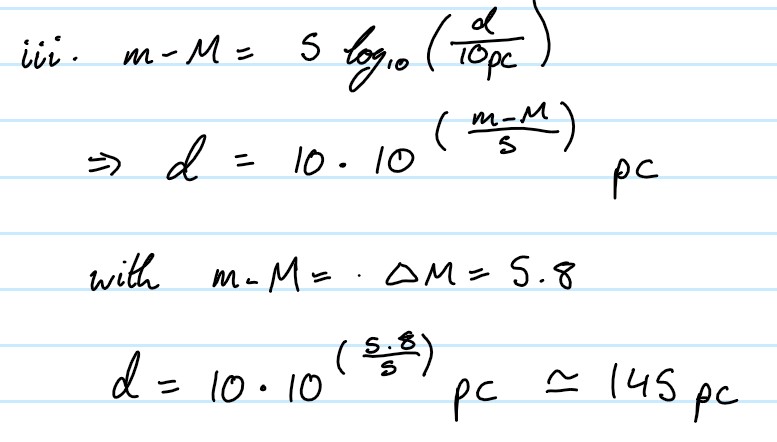 iii. m - M = 5 log₁₀ (d/10pc)
⇒ d = 10 · 10^((m-M)/5) pc
with m - M = · ΔM = 5.8
d = 10 · 10^(5.8/5) pc ≃ 145 pc